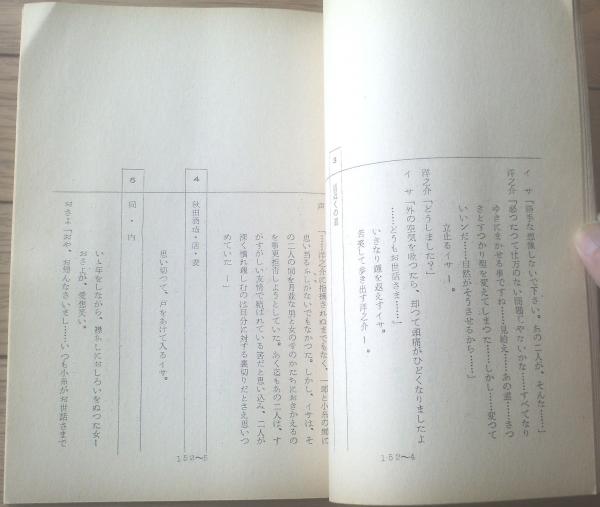 イ　サ「勝手な想像しないで下さい。あの二人が、そんな……」
洋之介「怒ったって仕方のない問題じゃないかな……すべてなり
ゆきにまかせる事ですね……見給え……あの道……きっ
とすっかり姿を変えてしまった……しかし……変って
いいンだ……自然がそうさせるから……」
立止るイサー。
洋之介「どうしました？」
イ　サ「外の空気を吸ったら、却って頭痛がひどくなりましたよ
……どうもお世話さま……」
いきなり踵を返えすイサ。
苦笑して歩き出す洋之介ー。
152〜4
3
近くの道
声
「……洋之介に指摘されるまでもなく、一郎と小糸の間に
思い当るふしがないでもなかつた。しかし、イサは、そ
の二人の間を月並な男と女の愛のかたちにおきかえるの
を事更拒否しようとしていた。あく迄もあの二人は、す
がすがしい友情で結ばれている筈だと思い込み、二人が
深く慣れ親しむのは自分に対する裏切りだとさえ思いつ
めていたー」
4
秋田酒場・店・表
思い切つて、戸をあけて入るイサ。
5
同・内
いい年をしながら、襟あしにおしろいをぬつた女ー
おさよが、愛想笑い。
おさよ「おや、お姐んなさいまし……いつも小糸がお世話さまで
152〜5